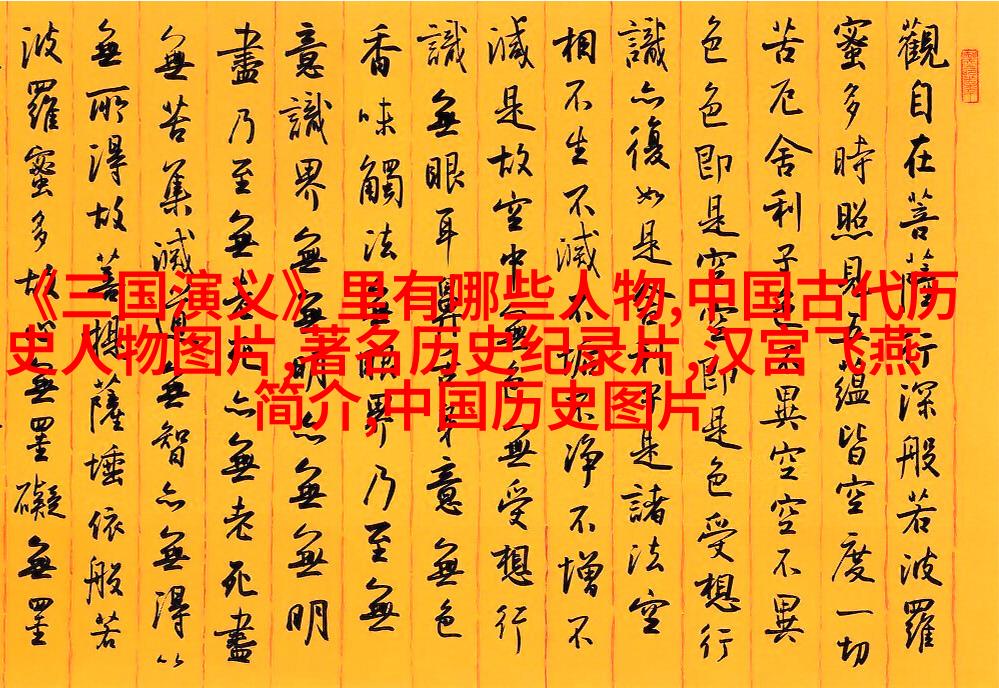 《三国演义》里有哪些人物,中国古代历
史人物图片,著名历史纪录片,汉宫飞燕
简介,中国历史图片
觀自在菩薩行深般若波羅
蜜多時照見五蘊皆空度一切
苦厄舍利子色不異空空不異
色色即是空空即是色受想行
識亦復如是舍利子是諸法空
相不生不滅不垢不淨不增不
減是故空中無色無受想行
識無眼耳鼻舌身意無色
香味觸法無眼界乃至無
意識界無無明亦無無明
盡乃至無老死亦無老死盡
無苦集滅道無智亦無得以
無所得故菩提薩埵依般若
波羅蜜多故心無罣礙無罣